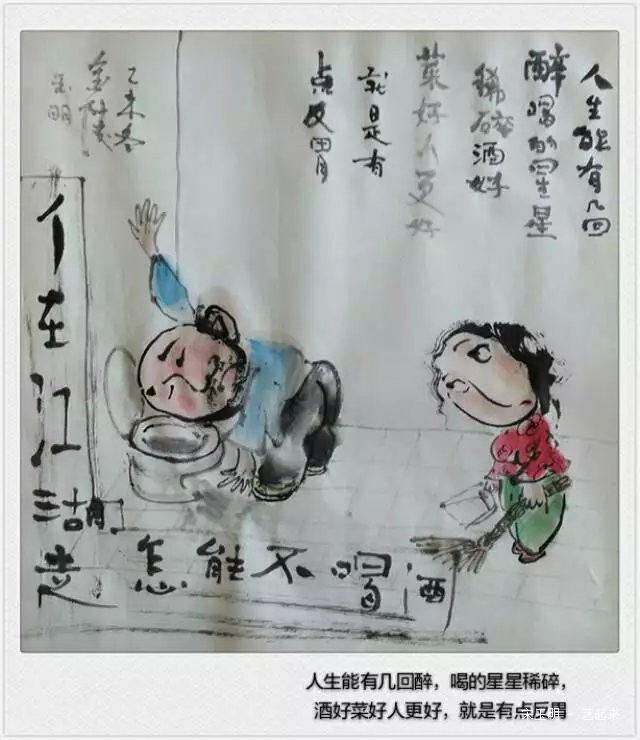 人生能有几回
醉喝的星星
稀碎酒好
菜好人更好
就是有
点反胃
乙未冬
金陵
玉明
人在江湖走
怎能不喝酒
人生能有几回醉，喝的星星稀碎，
酒好菜好人更好，就是有点反胃